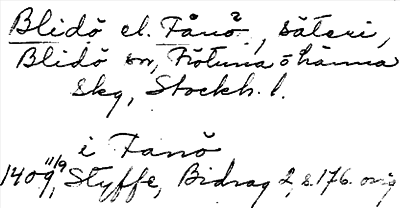 Blidö el. Fånö?, säteri,
Blidö sn, Frötuna o Länna
skg, Stockh. l.
i Fanö
1409 11/9, Styffe, Bidrag 2, s. 176. orig